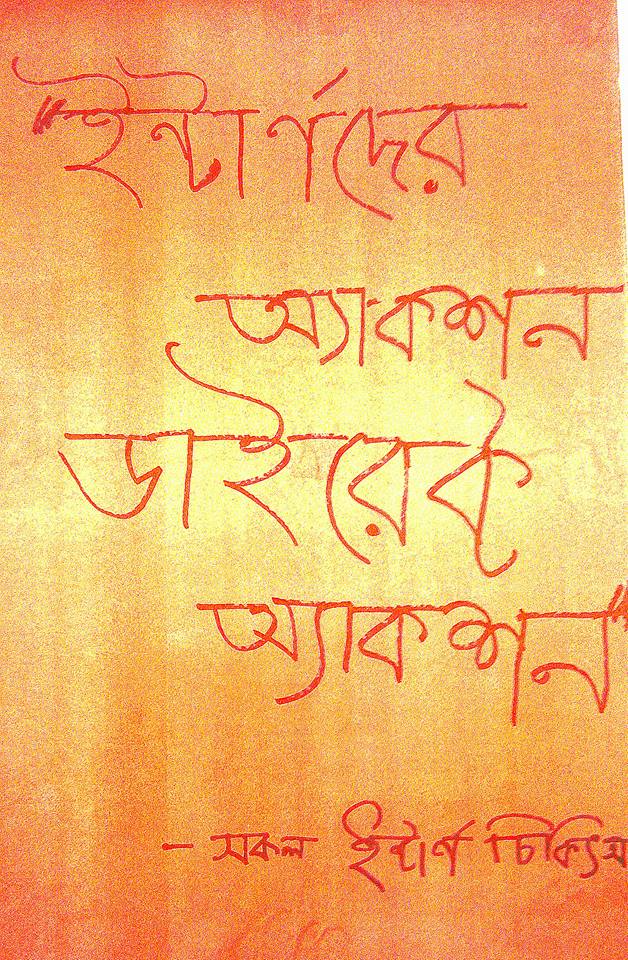 "ইন্টার্ণদের
অ্যাকশন
ডাইরেক্ট
অ্যাকশন"
- সকল ইন্টার্ণ